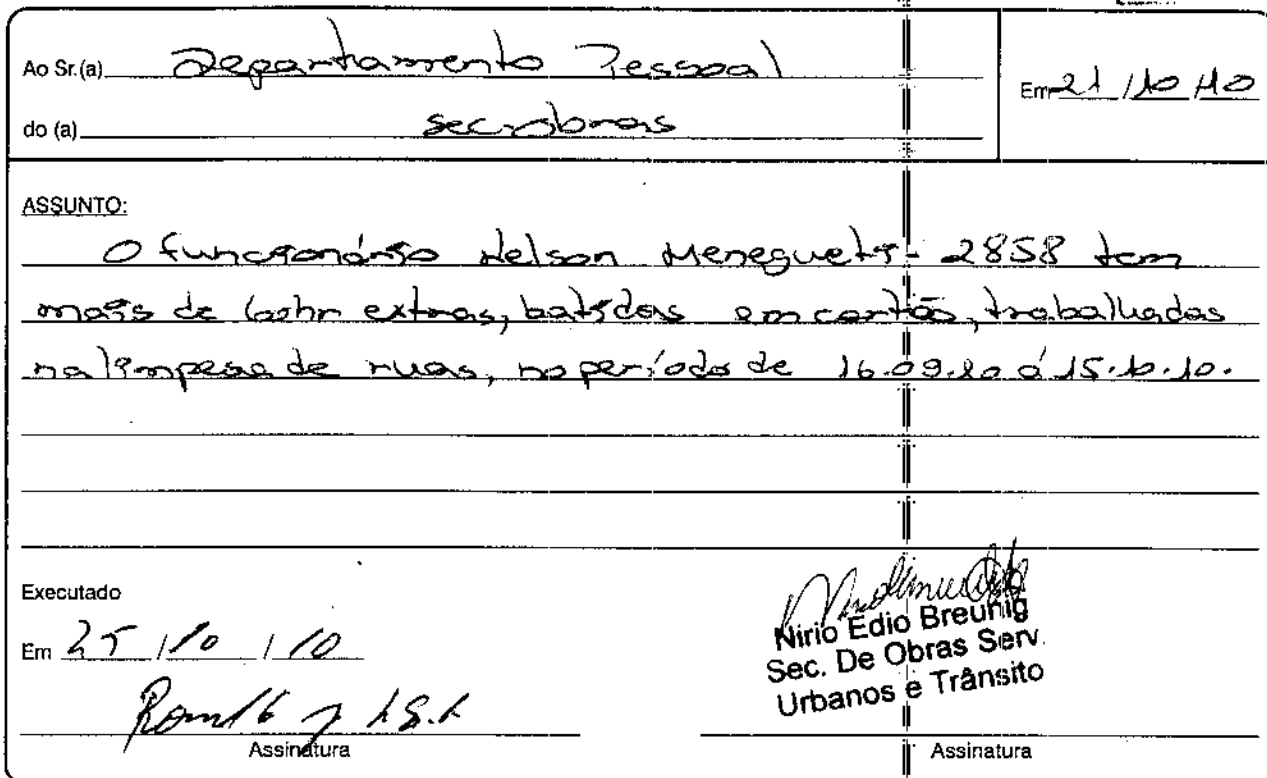 Ao Sr.(a) Departamento Pessoal
Em 21/10/10
do (a) Sec. obras
ASSUNTO:
O funcionário Nelson Meneguetti - 2858 tem
mais de 60hr extras, batidas em cartão, trabalhadas
na limpesa de ruas, no período de 16.09.10 á 15.10.10.
Executado
Em 25/10/10
Nirio Edio Breunig
Sec. De Obras Serv.
Urbanos e Trânsito
Assinatura
Assinatura